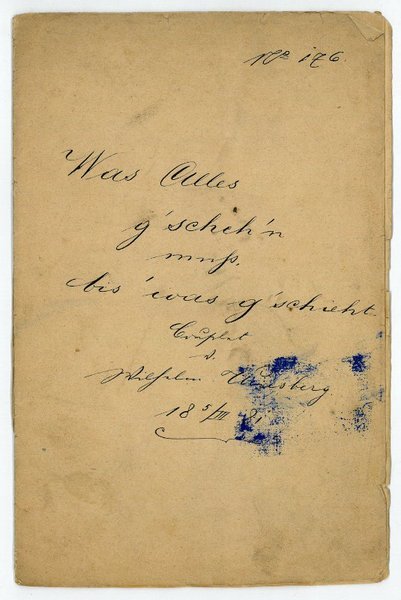 Nº 176.
Was Alles
g'scheh'n
muß,
bis 'was g'schieht.
Couplet
v.
Wilhelm Wiesberg
18 5/III 81